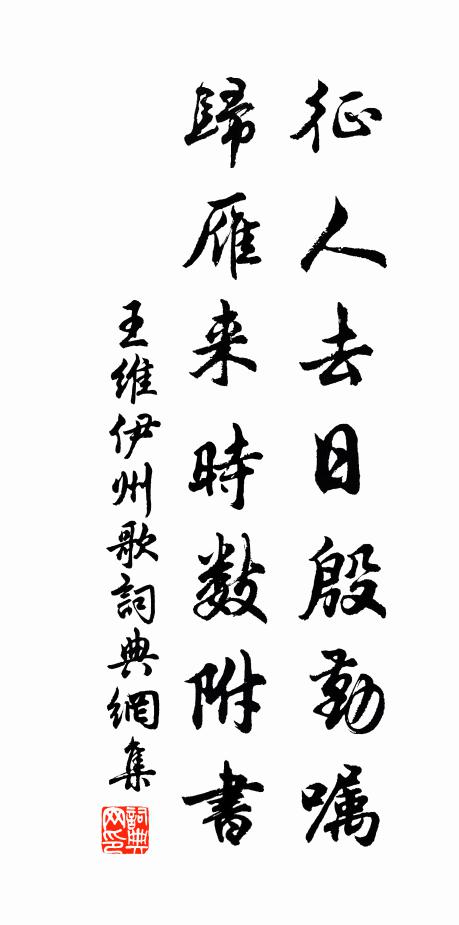 征人去日殷勤嘱
歸雁来時數附書
王维伊州歌詞典網集
詞典網印